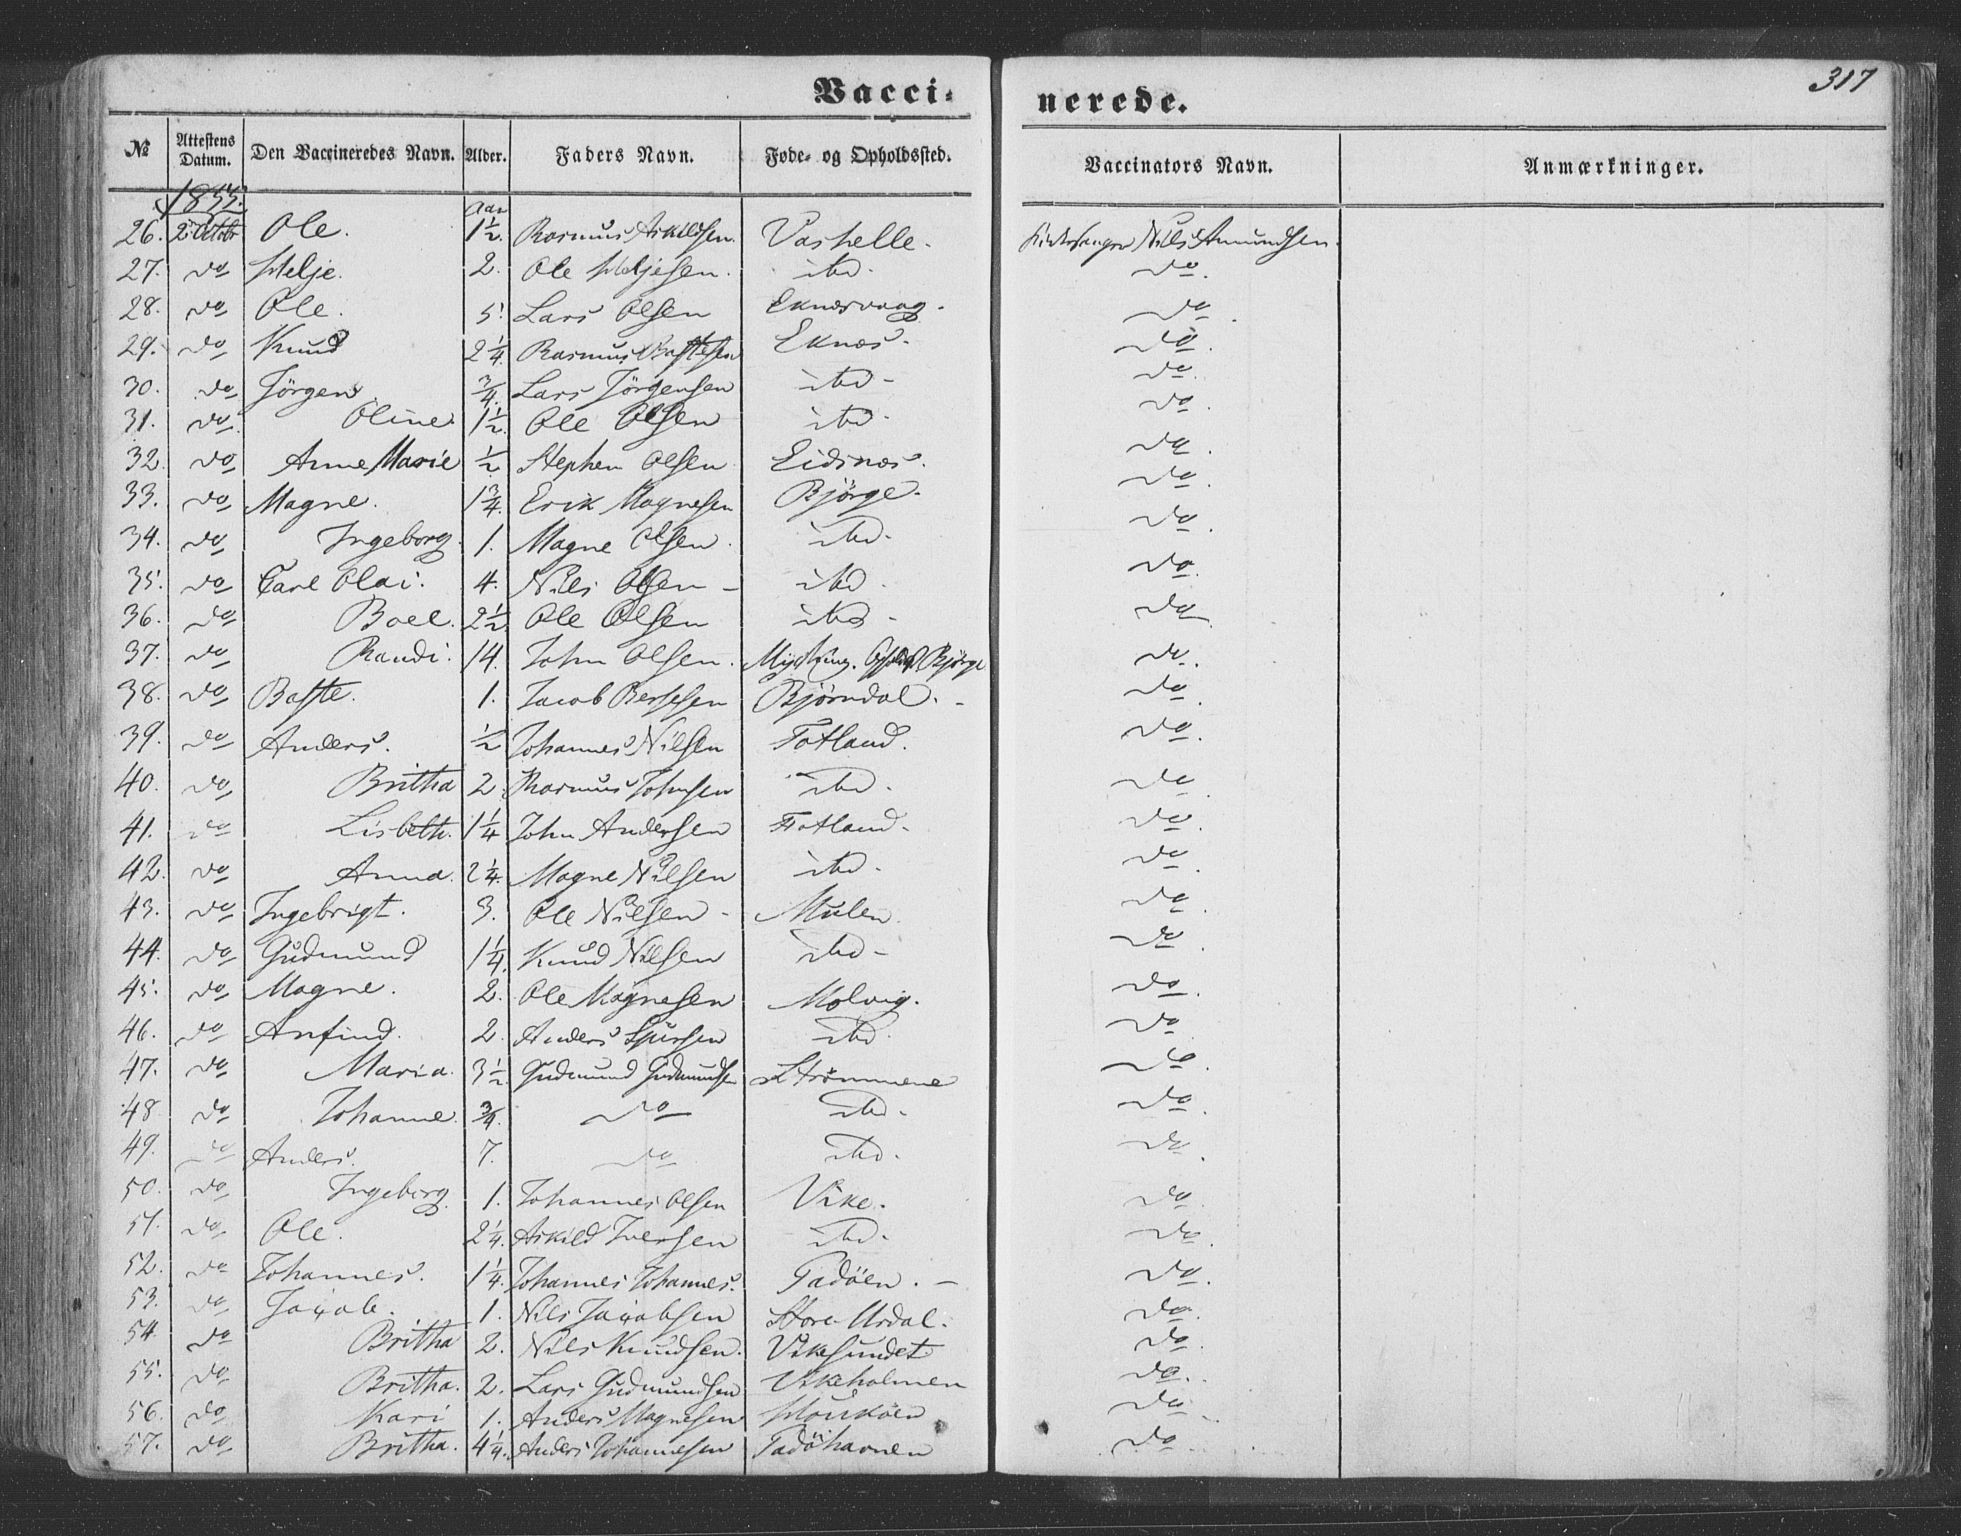 317
Vacci- nerede.
№ Attestens Datum. Den Vaccineredes Navn. Alder. Faders Navn. Føde- og Opholdssted. Vaccinators Navn. Anmærkninger.
Aar
26. 2 Octobr Ole. 1½. Rasmus Askildsen. Vashelle. Nils Amundsen.
27. do Helje. 2. Ole Heljesen. ibd. do.
28. do Ole. 5. Lars Olsen Eknæsvaag. do.
29. do Knud 2¼. Rasmus Bastesen Eknæs. do.
30. do Jörgen. ¾. Lars Jörgensen ibd. do.
31. do Oline. 1½. Ole Olsen ibd. do.
32. do Anne Marie ½ Stephen Olsen Eidsnæs. do.
33. do Magne. 1¾. Erik Magnesen Bjørge. do.
34. do Ingeborg. 1. Magne Olsen. ibd. do.
35. do Carl Olai. 4. Nils Olsen - ibd. do.
36. do Boel. 2½. Ole Olsen ibd. do
37. do Randi. 14. John Olsen. Bjørge do.
38. do Baste. 1. Jacob Bersesen Bjørndal. do.
39. do Anders. ½ Johannes Nilsen Fotland. do.
40. do Britha 2. Rasmus Johnsen ibd. do.
41. do Lisbeth. 1¼ John Andersen Fotland. do.
42. do Anna. 2¼. Magne Nilsen ibd. do.
43. do Ingebrigt. 3. Ole Nilsen - Mulen. do.
44. do Gudmund 1¼. Knud Nilsen ibd - do.
45. do Magne. 2. Ole Magnesen Molvig. do.
46. do Anfind. 2. Anders ibd. do.
47. do Maria. 3½. Gudmund Gudmundsen Strömmene do.
48 do Johanne. ¾. do ibd. do.
49. do Anders. 7. do ibd. do.
50. do Ingeborg. 1. Johannes Olsen Vike. do.
51. do Ole. 2¼. Askild Iversen ibd. do.
52. do Johannes. 1¼. Johannes Johannes. Tadöen. - do.
53. do Jacob. 1. Nils Jacobsen Store Urdal. do.
54. do Britha 2. Nils Knudsen. Vikesundet do.
55. do Britha. 2. Lars Gudmundsen Vikeholmen do.
56. do Kari 1. Anders Magnesen do.
57. do Britha. 4¼. Anders Johannesen Tadöhavnen do